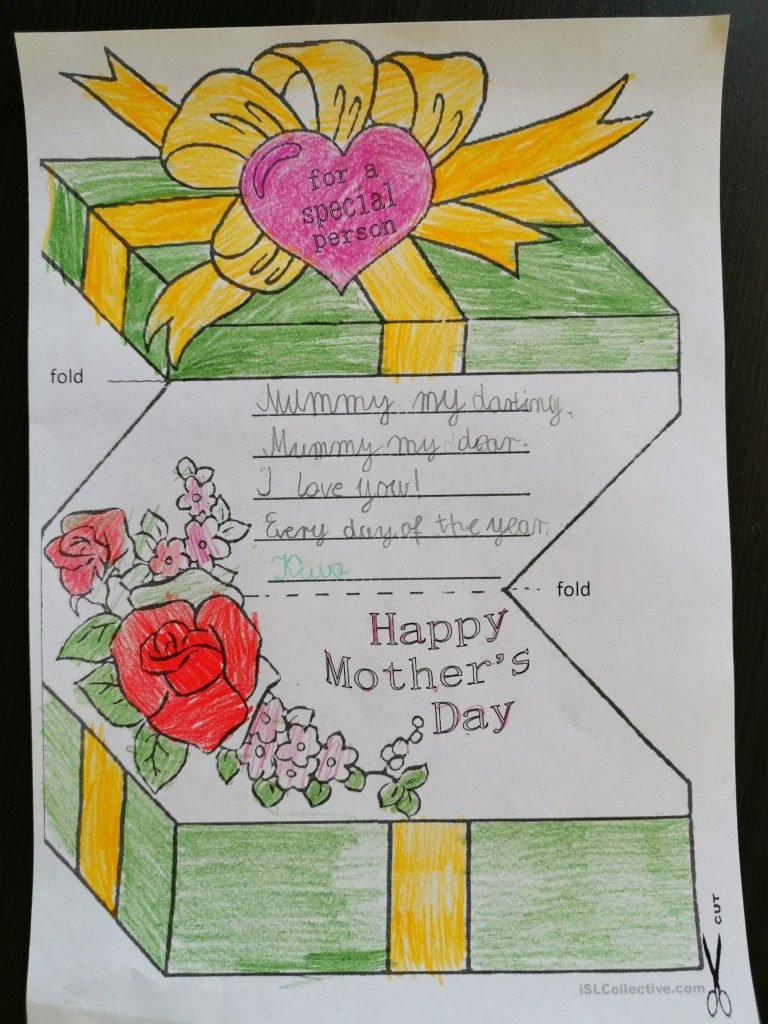 for a
special
person
fold
Mummy my darling,
Mummy my dear.
I love you!
Every day of the year.
fold
Happy
Mother's
Day
CUT
iSLCollective.com